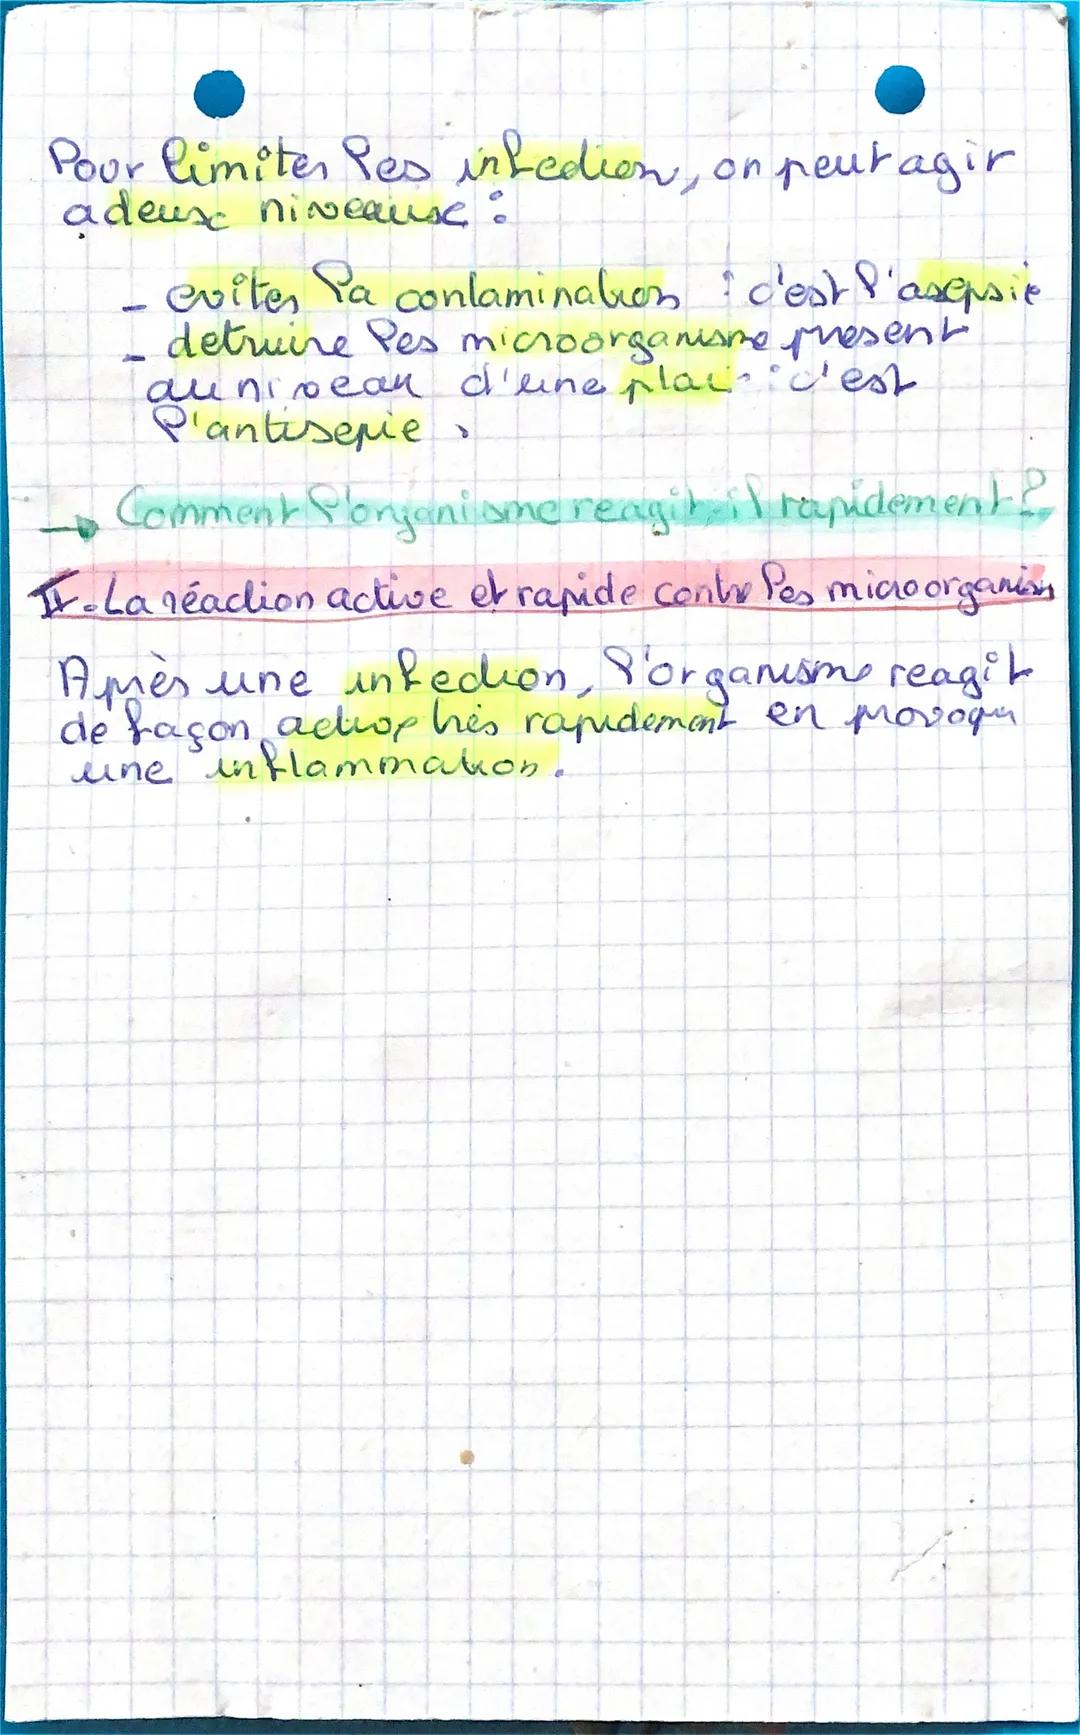 Pour limiter les infection, on peut agir
a deux niveaux :
- eviter la contamination : c'est l'asepsie
- detruire les microorganisme present
au niveau d'une plaie : c'est
l'antisepie.
→ Comment l'organisme reagit-il rapidement ?
II. La réaction active et rapide contre les microorganism
Après une infection, l'organisme reagit
de façon active très rapidement en provoqu
une inflammation.